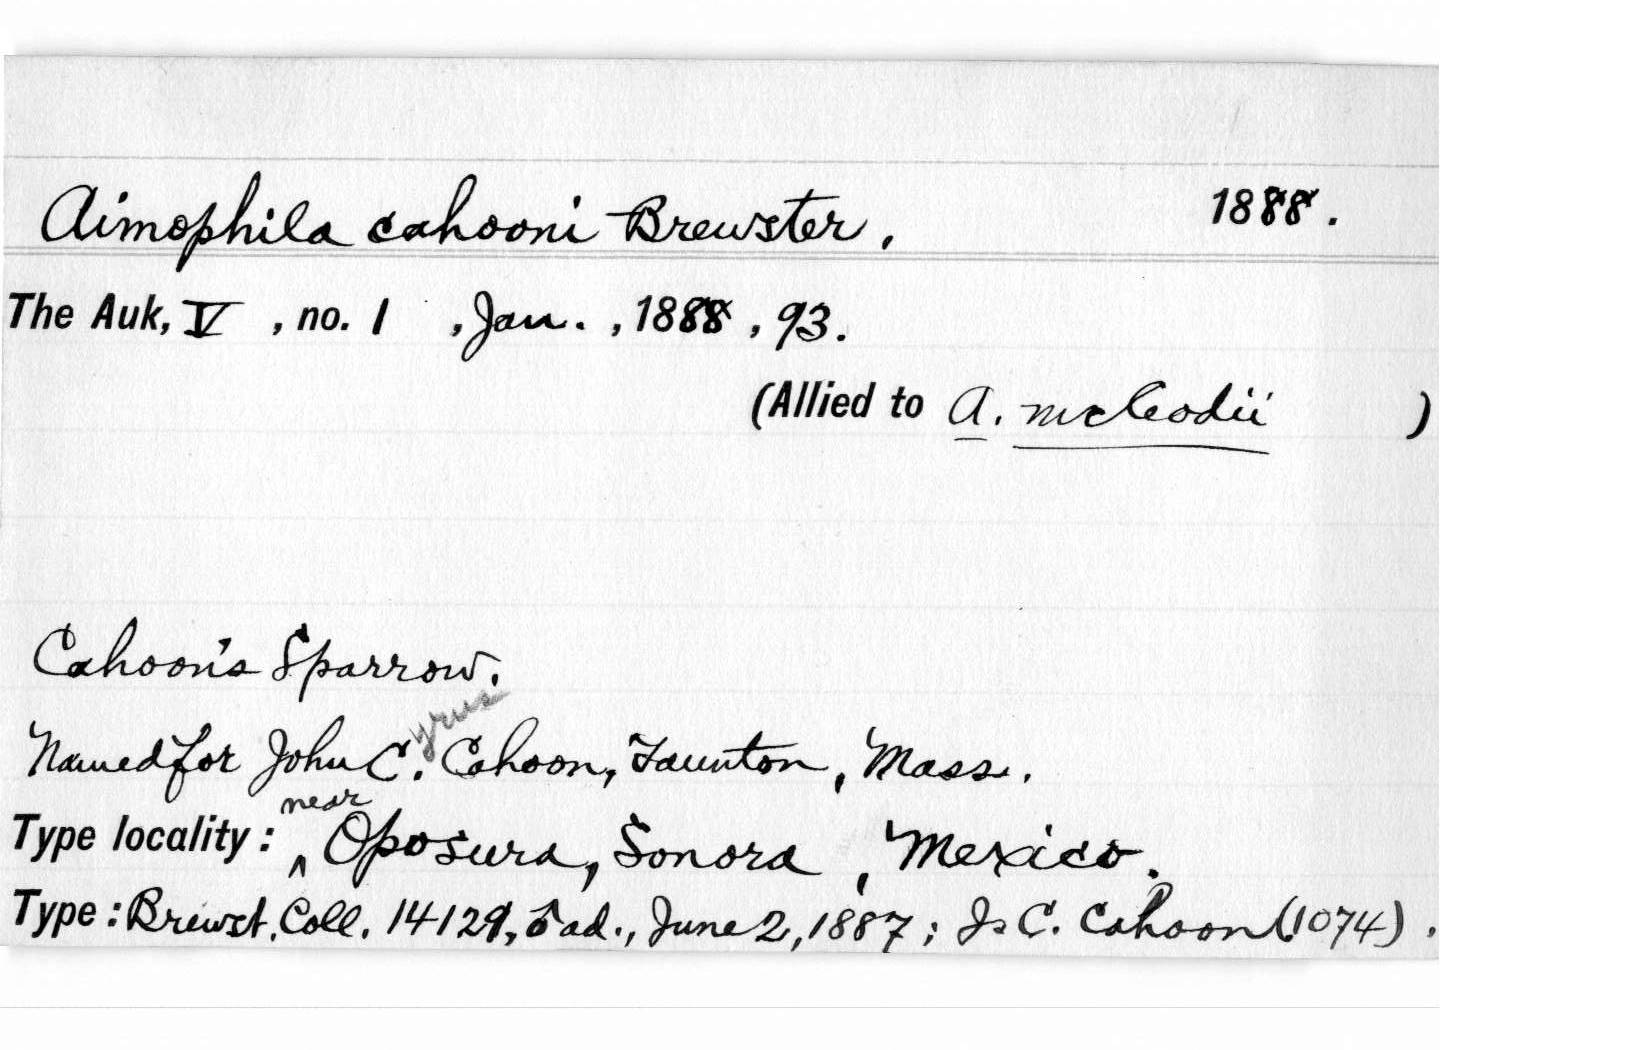 Aimophila cahooni Brewster, 1888.
The Auk, V, no. 1, Jan., 1888, 93.
(Allied to A. mcleodii)
Cahoon's Sparrow.
yrus
Named for John C. Cahoon, Taunton, Mass.
near
Type locality: ^ Oposura, Sonora, Mexico.
Type: Brewst. Coll. 14129, ♂ ad., June 2, 1887; J. C. Cahoon (1074).